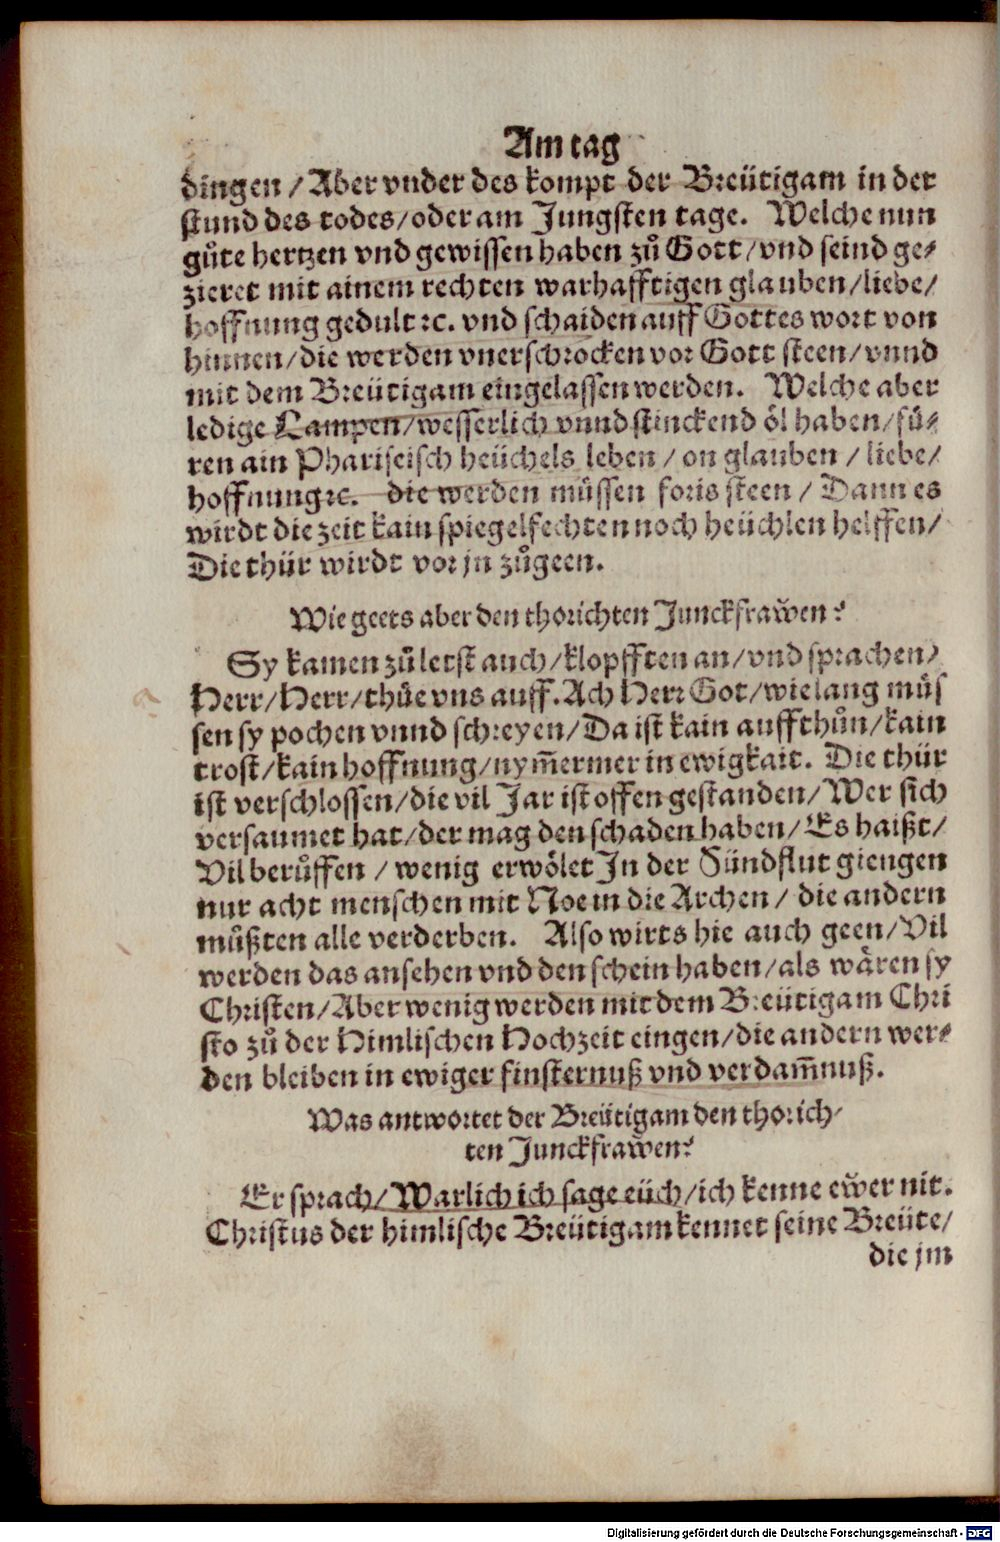 Am tag
dingen / Aber vnder des kompt der Breütigam in der
stund des todes/oder am Jungsten tage. Welche nun
gůte hertzen vnd gewissen haben zů Gott/vnd seind ge-
zieret mit ainem rechten warhafftigen glauben/liebe/
hoffnung gedult ꝛc. vnd schaiden auff Gottes wort von
hinnen/die werden vnerschrocken vor Gott steen/vnnd
mit dem Breütigam eingelassen werden. Welche aber
ledige Lampen/wesserlich vnnd stinckend öl haben/fü-
ren ain Phariseisch heüchels leben / on glauben / liebe/
hoffnung ꝛc. die werden müssen foris steen / Dann es
wirdt die zeit kain spiegelfechten noch heüchlen helffen/
Die thür wirdt vor jn zůgeen.
Wie geets aber den thorichten Junckfraw̌en?
Sy kamen zů letst auch/klopfften an/vnd sprachen/
Herr/Herr/thůe vns auff. Ach Herr Got/wie lang müs
sen sy pochen vnnd schreyen/Da ist kain auffthůn/kain
trost/kain hoffnung/nym̃ermer in ewigkait. Die thür
ist verschlossen/die vil Jar ist offen gestanden/Wer sich
versaumet hat/der mag den schaden haben/Es haißt/
Vil berůffen / wenig erwölet In der Sündflut giengen
nur acht menschen mit Noe in die Archen / die andern
müßten alle verderben. Also wirts hie auch geen/Vil
werden das ansehen vnd den schein haben/als wären sy
Christen/Aber wenig werden mit dem Breütigam Chri
sto zů der Himlischen Hochzeit eingen/die andern wer-
den bleiben in ewiger finsternuß vnd verdam̃nuß.
Was antwortet der Breütigam den thorich-
ten Junckfraw̌en?
Er sprach/Warlich ich sage eüch/ich kenne ew̌er nit.
Christus der himlische Breütigam kennet seine Breüte/
die jm
Digitalisierung gefördert durch die Deutsche Forschungsgemeinschaft - DFG